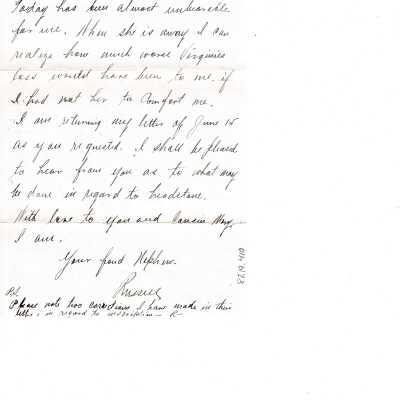 Today has been almost unbearable
for me. When she is away I can
realize how much worse Virginia's
loss would have been to me if
I had not her to comfort me.
I am returning my letter of June 15
as you requested. I shall be pleased
to hear from you as to what may
be done in regard to headstone.
With love to you and Cousin Mary,
I am.
Your fond Nephew.
Russell
P.S.
Please note two corrections I have made in this
letter, in regard to inscription — R—